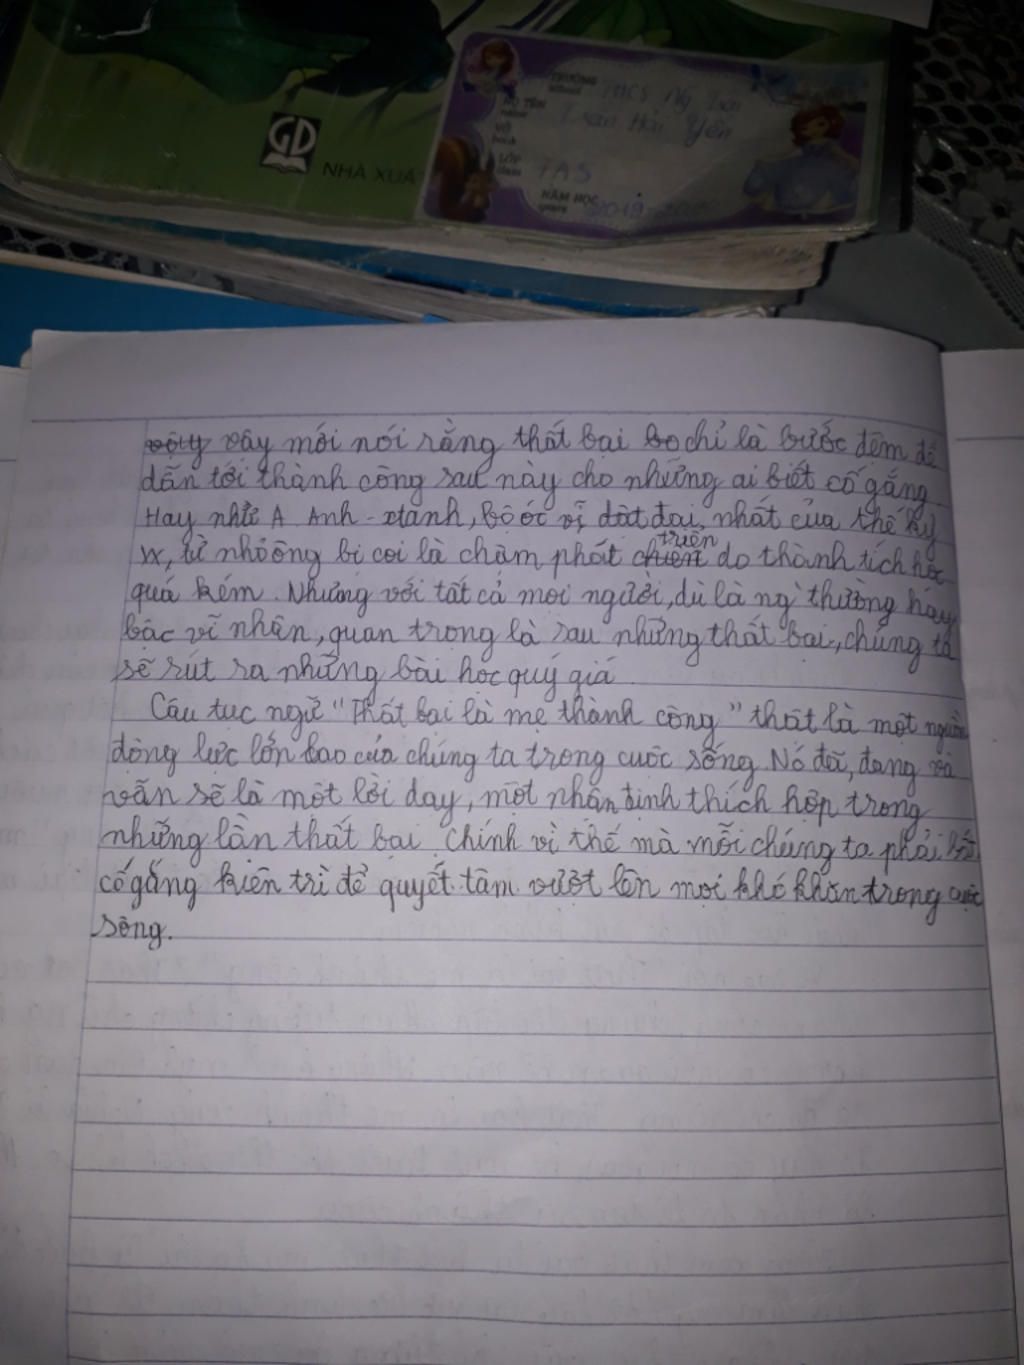 GD
NHÀ XUẤ
TRƯỜNG School THCS Ng Trãi
HỌ TÊN name Trần Hải Yến
VỞ book
LỚP class 7A5
NĂM HỌC years 2019-2020
vậy mới nói rằng thất bại chỉ là bước đệm để
dẫn tới thành công sau này cho những ai biết cố gắng
Hay như A Anh-xtanh, bộ óc vĩ đật đại nhất của thế kỷ
XX, từ nhỏ ông bị coi là chậm phát triển do thành tích học
quá kém. Nhưng với tất cả mọi người, dù là ng' thường hay
bậc vĩ nhân, quan trọng là sau những thất bại, chúng ta
sẽ rút ra những bài học quý giá
Câu tục ngữ "Thất bại là mẹ thành công" thật là một nguồn
động lực lớn lao của chúng ta trong cuộc sống. Nó đã, đang và
vẫn sẽ là một lời dạy, một nhận định thích hợp trong
những lần thất bại. Chính vì thế mà mỗi chúng ta phải
cố gắng kiên trì để quyết tâm vượt lên mọi khó khăn trong cuộc
sống.